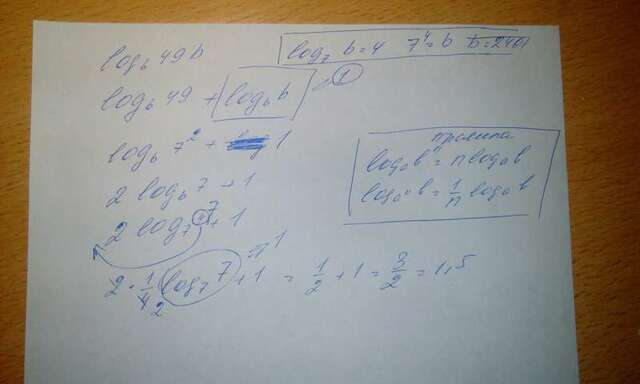 log_b 49b
log_7 b = 4 7^4 = b b = 2401
log_b 49 + log_b b 1
log_b 7^2 + 1
2 log_b 7 + 1
2 log_{7^4} 7 + 1
2 · 1/4 log_7 7 + 1 = 1/2 + 1 = 3/2 = 1,5
2 1
правила
log_a b^n = n log_a b
log_{a^n} b = 1/n log_a b